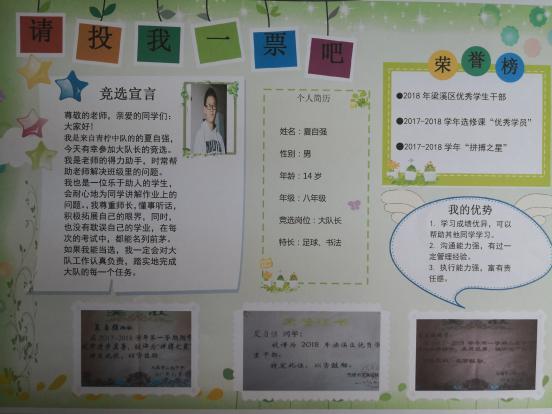 请投我一票吧
竞选宣言
尊敬的老师，亲爱的同学们：
大家好！
我是来自青柠中队的的夏自强，
今天有幸参加大队长的竞选。
我是老师的得力助手，时常帮
助老师解决班级里的问题。
我也是一位乐于助人的学生，
会耐心地为同学讲解作业上的
问题。我尊重师长，懂事听话，
积极拓展自己的眼界，同时，
也没有耽误自己的学业，在每
次的考试中，都能名列前茅。
如果我能当选，我一定会对大
队工作认真负责，踏实地完成
大队的每一个任务。
个人简历
姓名：夏自强
性别：男
年龄：14岁
年级：八年级
竞选岗位：大队长
特长：足球、书法
荣誉榜
●2018年梁溪区优秀学生干部
●2017-2018学年选修课“优秀学员”
●2017-2018学年“拼搏之星”
我的优势
1. 学习成绩优异，可以
帮助其他同学学习。
2. 沟通能力强，有过一
定管理经验。
3. 执行能力强，富有责
任感。
夏自强
在2017-2018学年第一学期期
以资鼓励。
夏自强 同学：
被评为 2018 年梁溪区优秀学
生干部。
特发此证，以资鼓励。